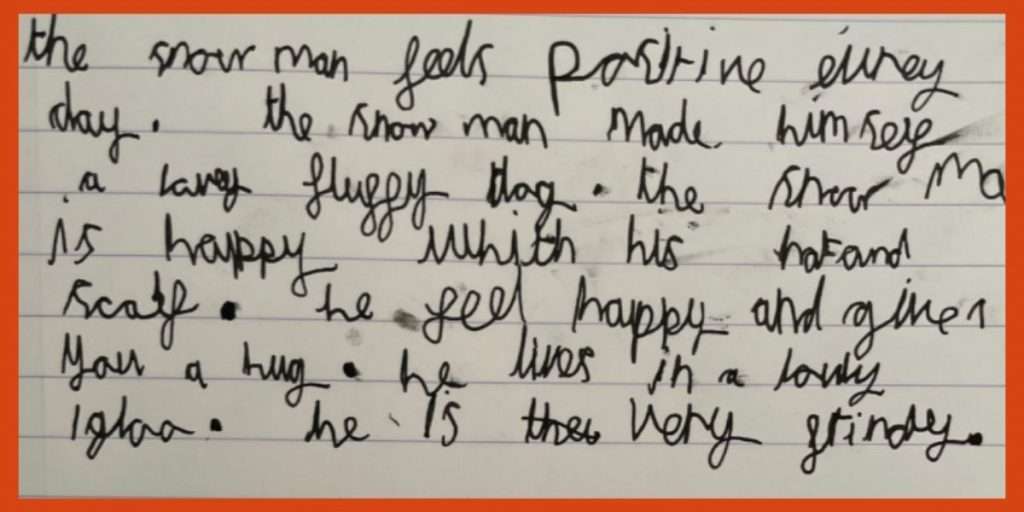 the snow man feels positive eurey
day. the snow man made himself
a lavey fluffy dog. the snow ma
is happy whith his hat and
scalf. he feel happy and gives
you a hug. he lives in a lovly
igloo. he is very frindly.